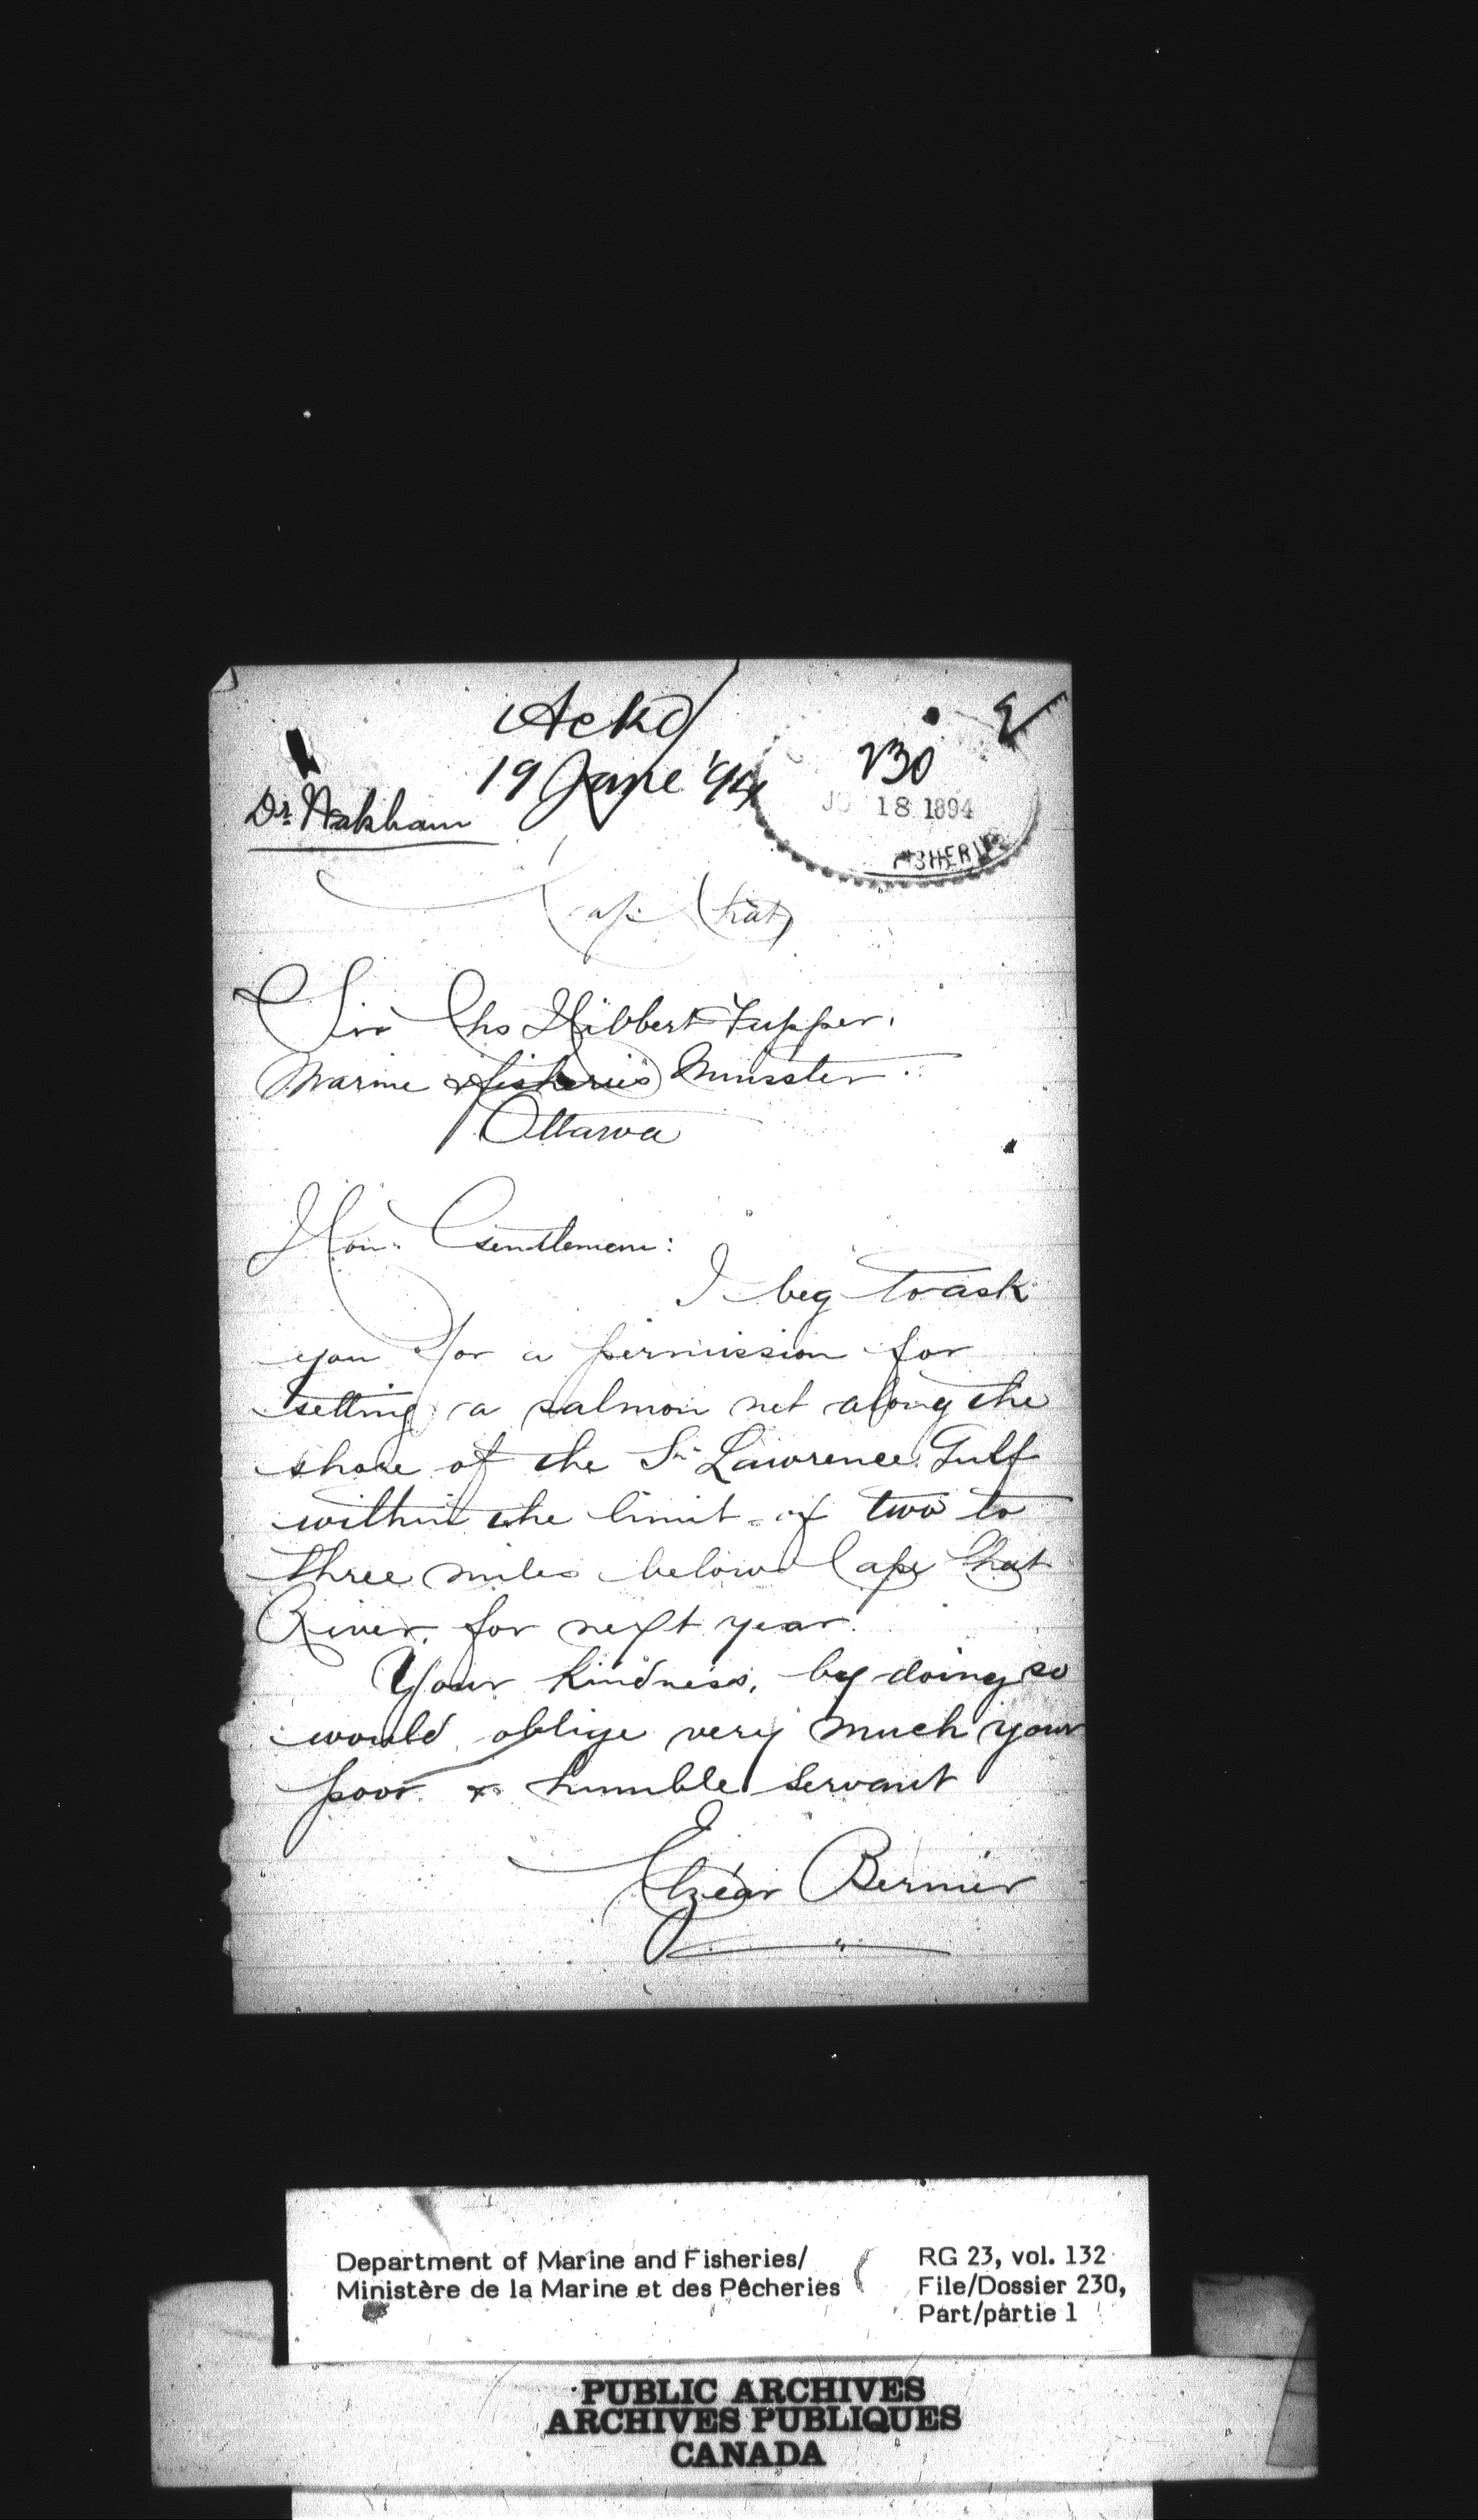 Ackd
19 June '94
230
18 1894
Dr. Wakham
FISHERIE
Cape Chat,
Sir Chs Hibbert Tupper,
Marine & fisheries Minister.
Ottawa
Hon. Gentleman:
I beg to ask
you for a permission for
setting a salmon net along the
shore of the St Lawrence Gulf
within the limit of two to
three miles below Cape Chat
River, for next year.
Your kindness, by doing so
would oblige very much your
poor & humble servant
Elzéar Bernier
Department of Marine and Fisheries/
Ministère de la Marine et des Pêcheries
RG 23, vol. 132
File/Dossier 230,
Part/partie 1
PUBLIC ARCHIVES
ARCHIVES PUBLIQUES
CANADA